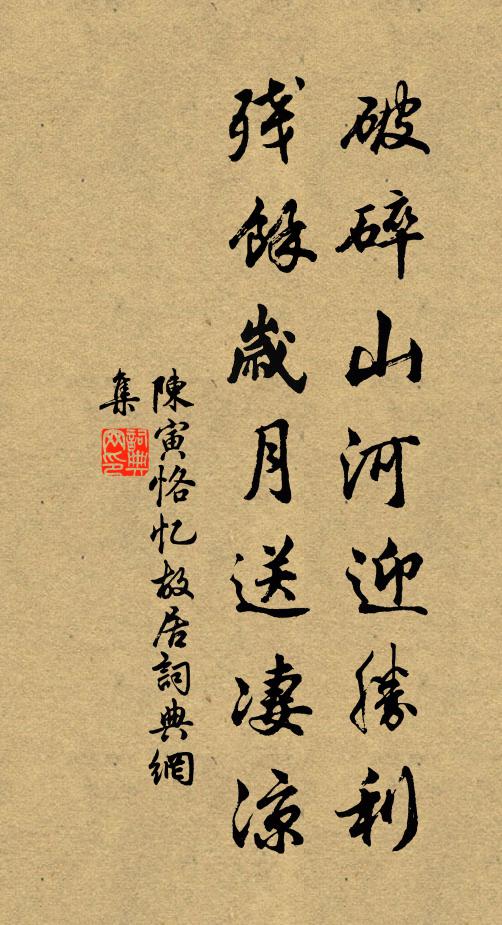 破碎山河迎勝利
殘餘歲月送凄涼
陳寅恪忆故居詞典網
集
詞典網印